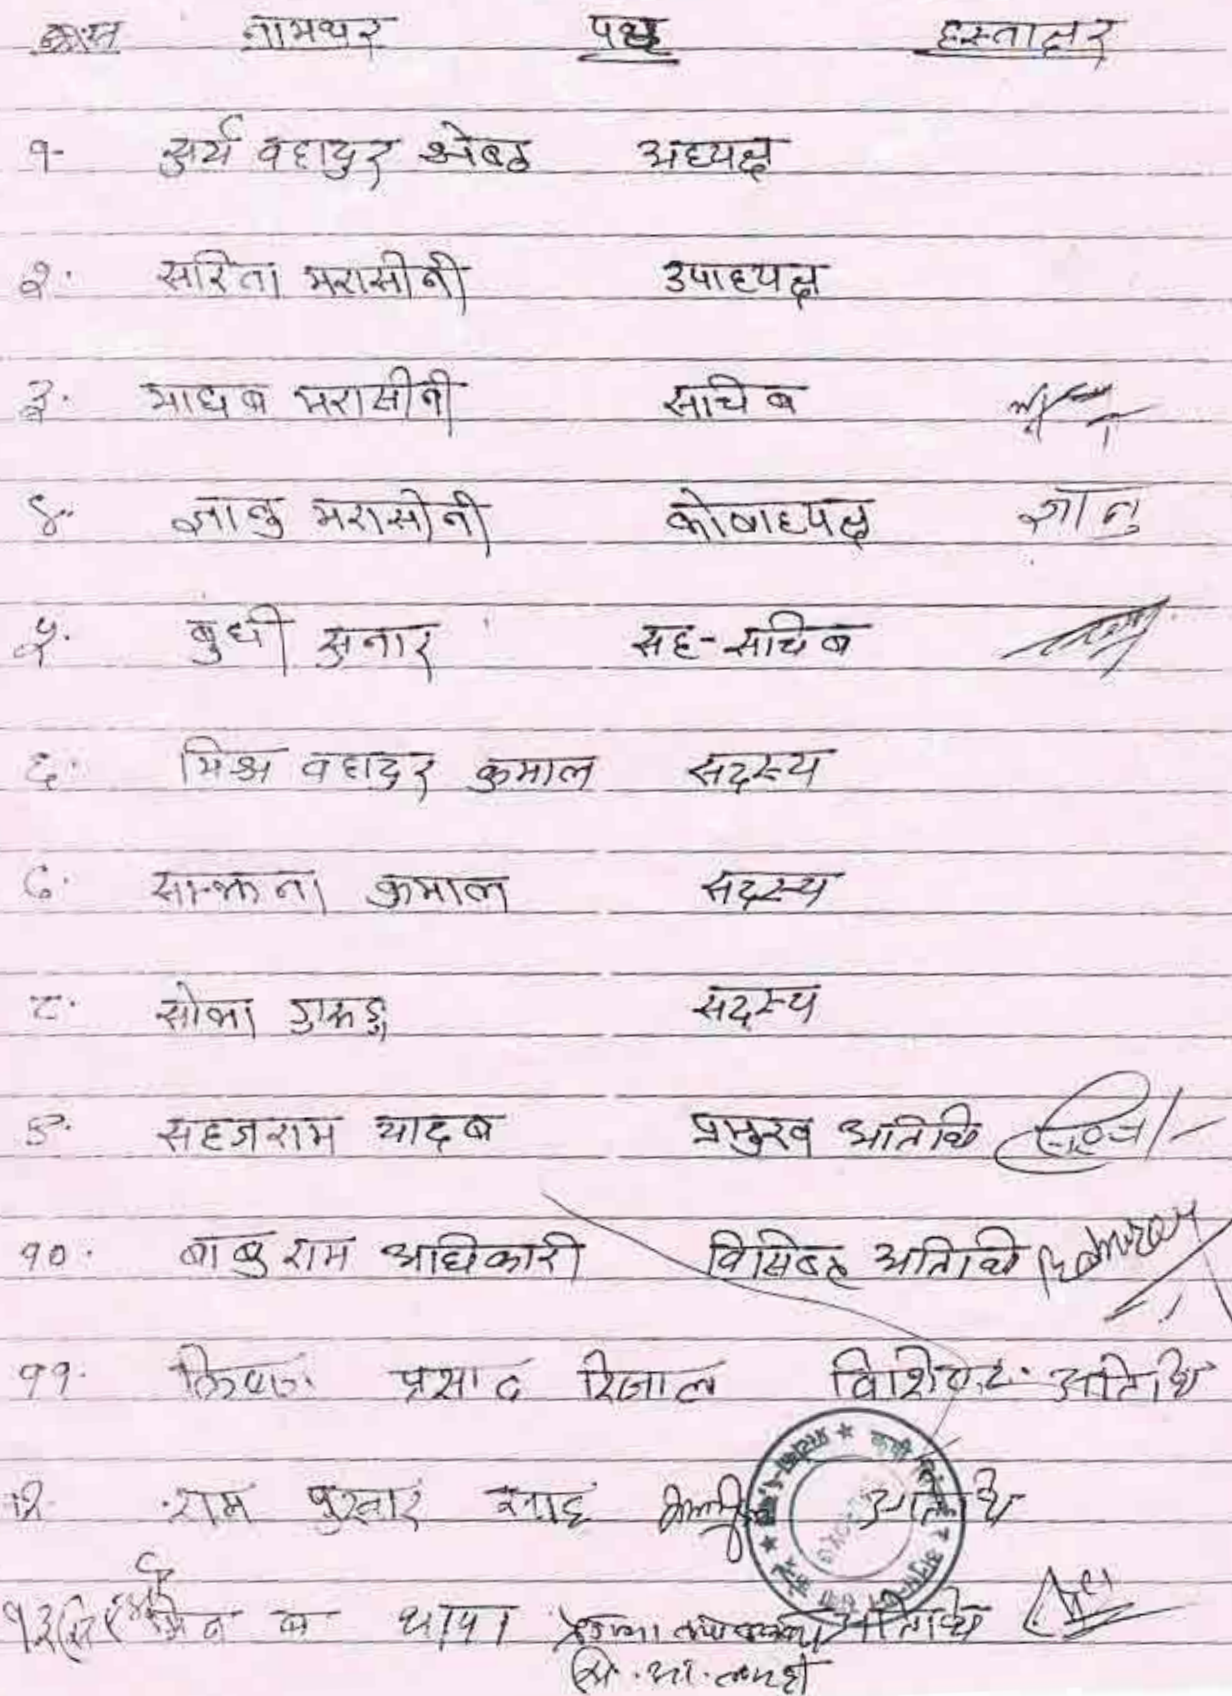 क्र.स नामथर पद हस्ताक्षर
१- सुर्य वहादुर श्रेष्ठ अध्यक्ष
२. सरिता मरासीनी उपाध्यक्ष
३. माधब मरासीनी सचिब
४. ज्ञानु मरासीनी कोषाध्यक्ष ज्ञानु
५. बुधी सुनार सह-सचिब
६. मिश्र वहादुर कुमाल सदस्य
७. साझना कुमाल सदस्य
८. सोभा गुरुङ सदस्य
९. सहजराम यादब प्रमुख अतिथि
१०. बाबुराम अधिकारी विसिष्ठ अतिथि
११. प्रसाद रिजाल विशिष्ट अतिथि
१२ राम पुकार साह अतिथि
१३ थापा अतिथि